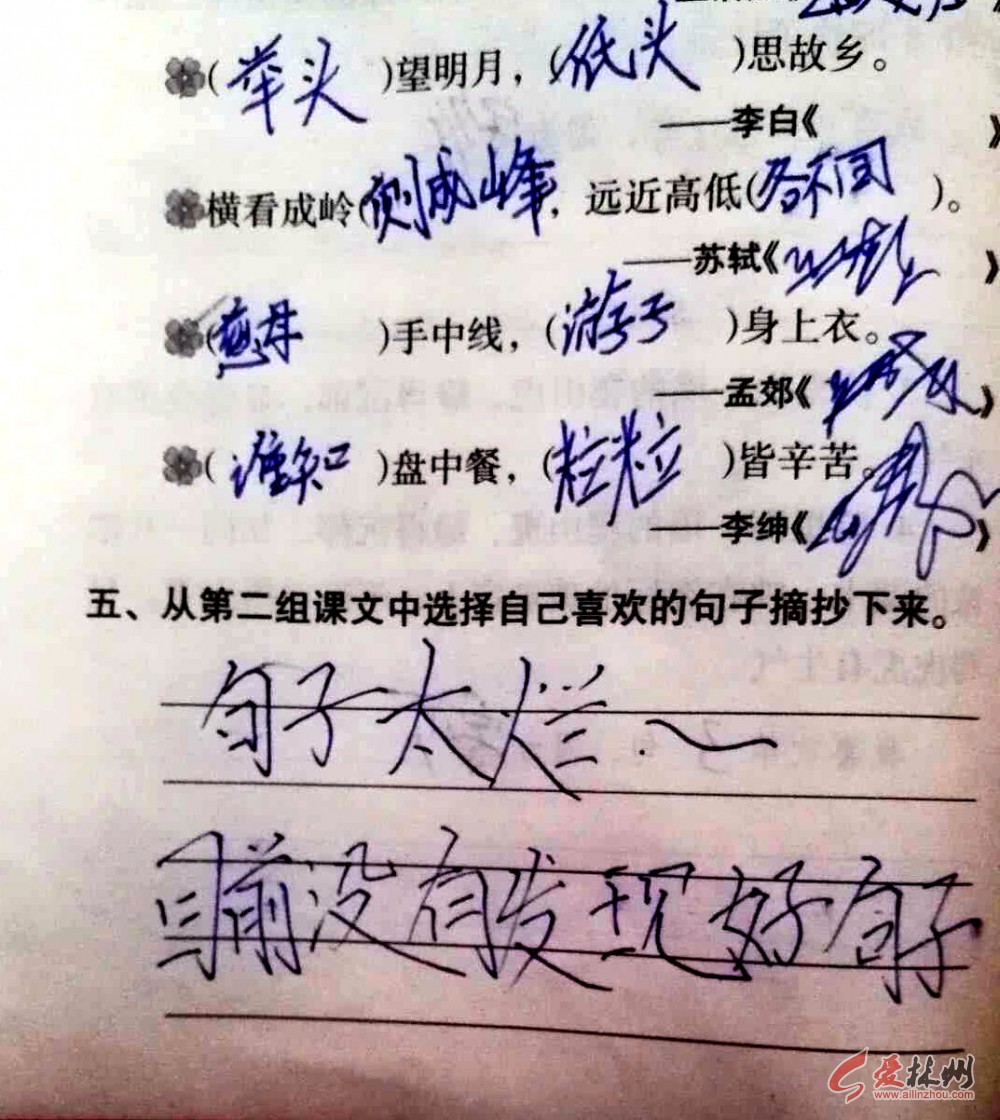 (举头)望明月，(低头)思故乡。
——李白《》
横看成岭(侧成峰，远近高低(各不同)。
——苏轼《》
(慈母)手中线，(游子)身上衣。
——孟郊《》
(谁知)盘中餐，(粒粒)皆辛苦。
——李绅《》
五、从第二组课文中选择自己喜欢的句子摘抄下来。
句子太烂~
目前没有发现好句子
爱林州
www.ailinzhou.com